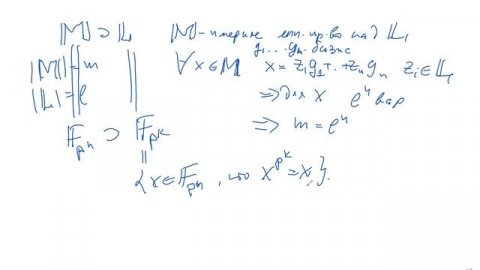 𝕄 ⊃ 𝕃 𝕄 - линейное пр-во над 𝕃
g₁ ... gₙ базис
|𝕄| = m ∀ x ∈ 𝕄 x = z₁g₁ + .. + zₙgₙ zᵢ ∈ 𝕃
|𝕃| = ℓ ⇒ для x ℓⁿ вар
𝔽_{pⁿ} ⊃ 𝔽_{pᵏ} ⇒ m = ℓⁿ
||
{x ∈ 𝔽_{pⁿ}, что x^{pᵏ} = x}.